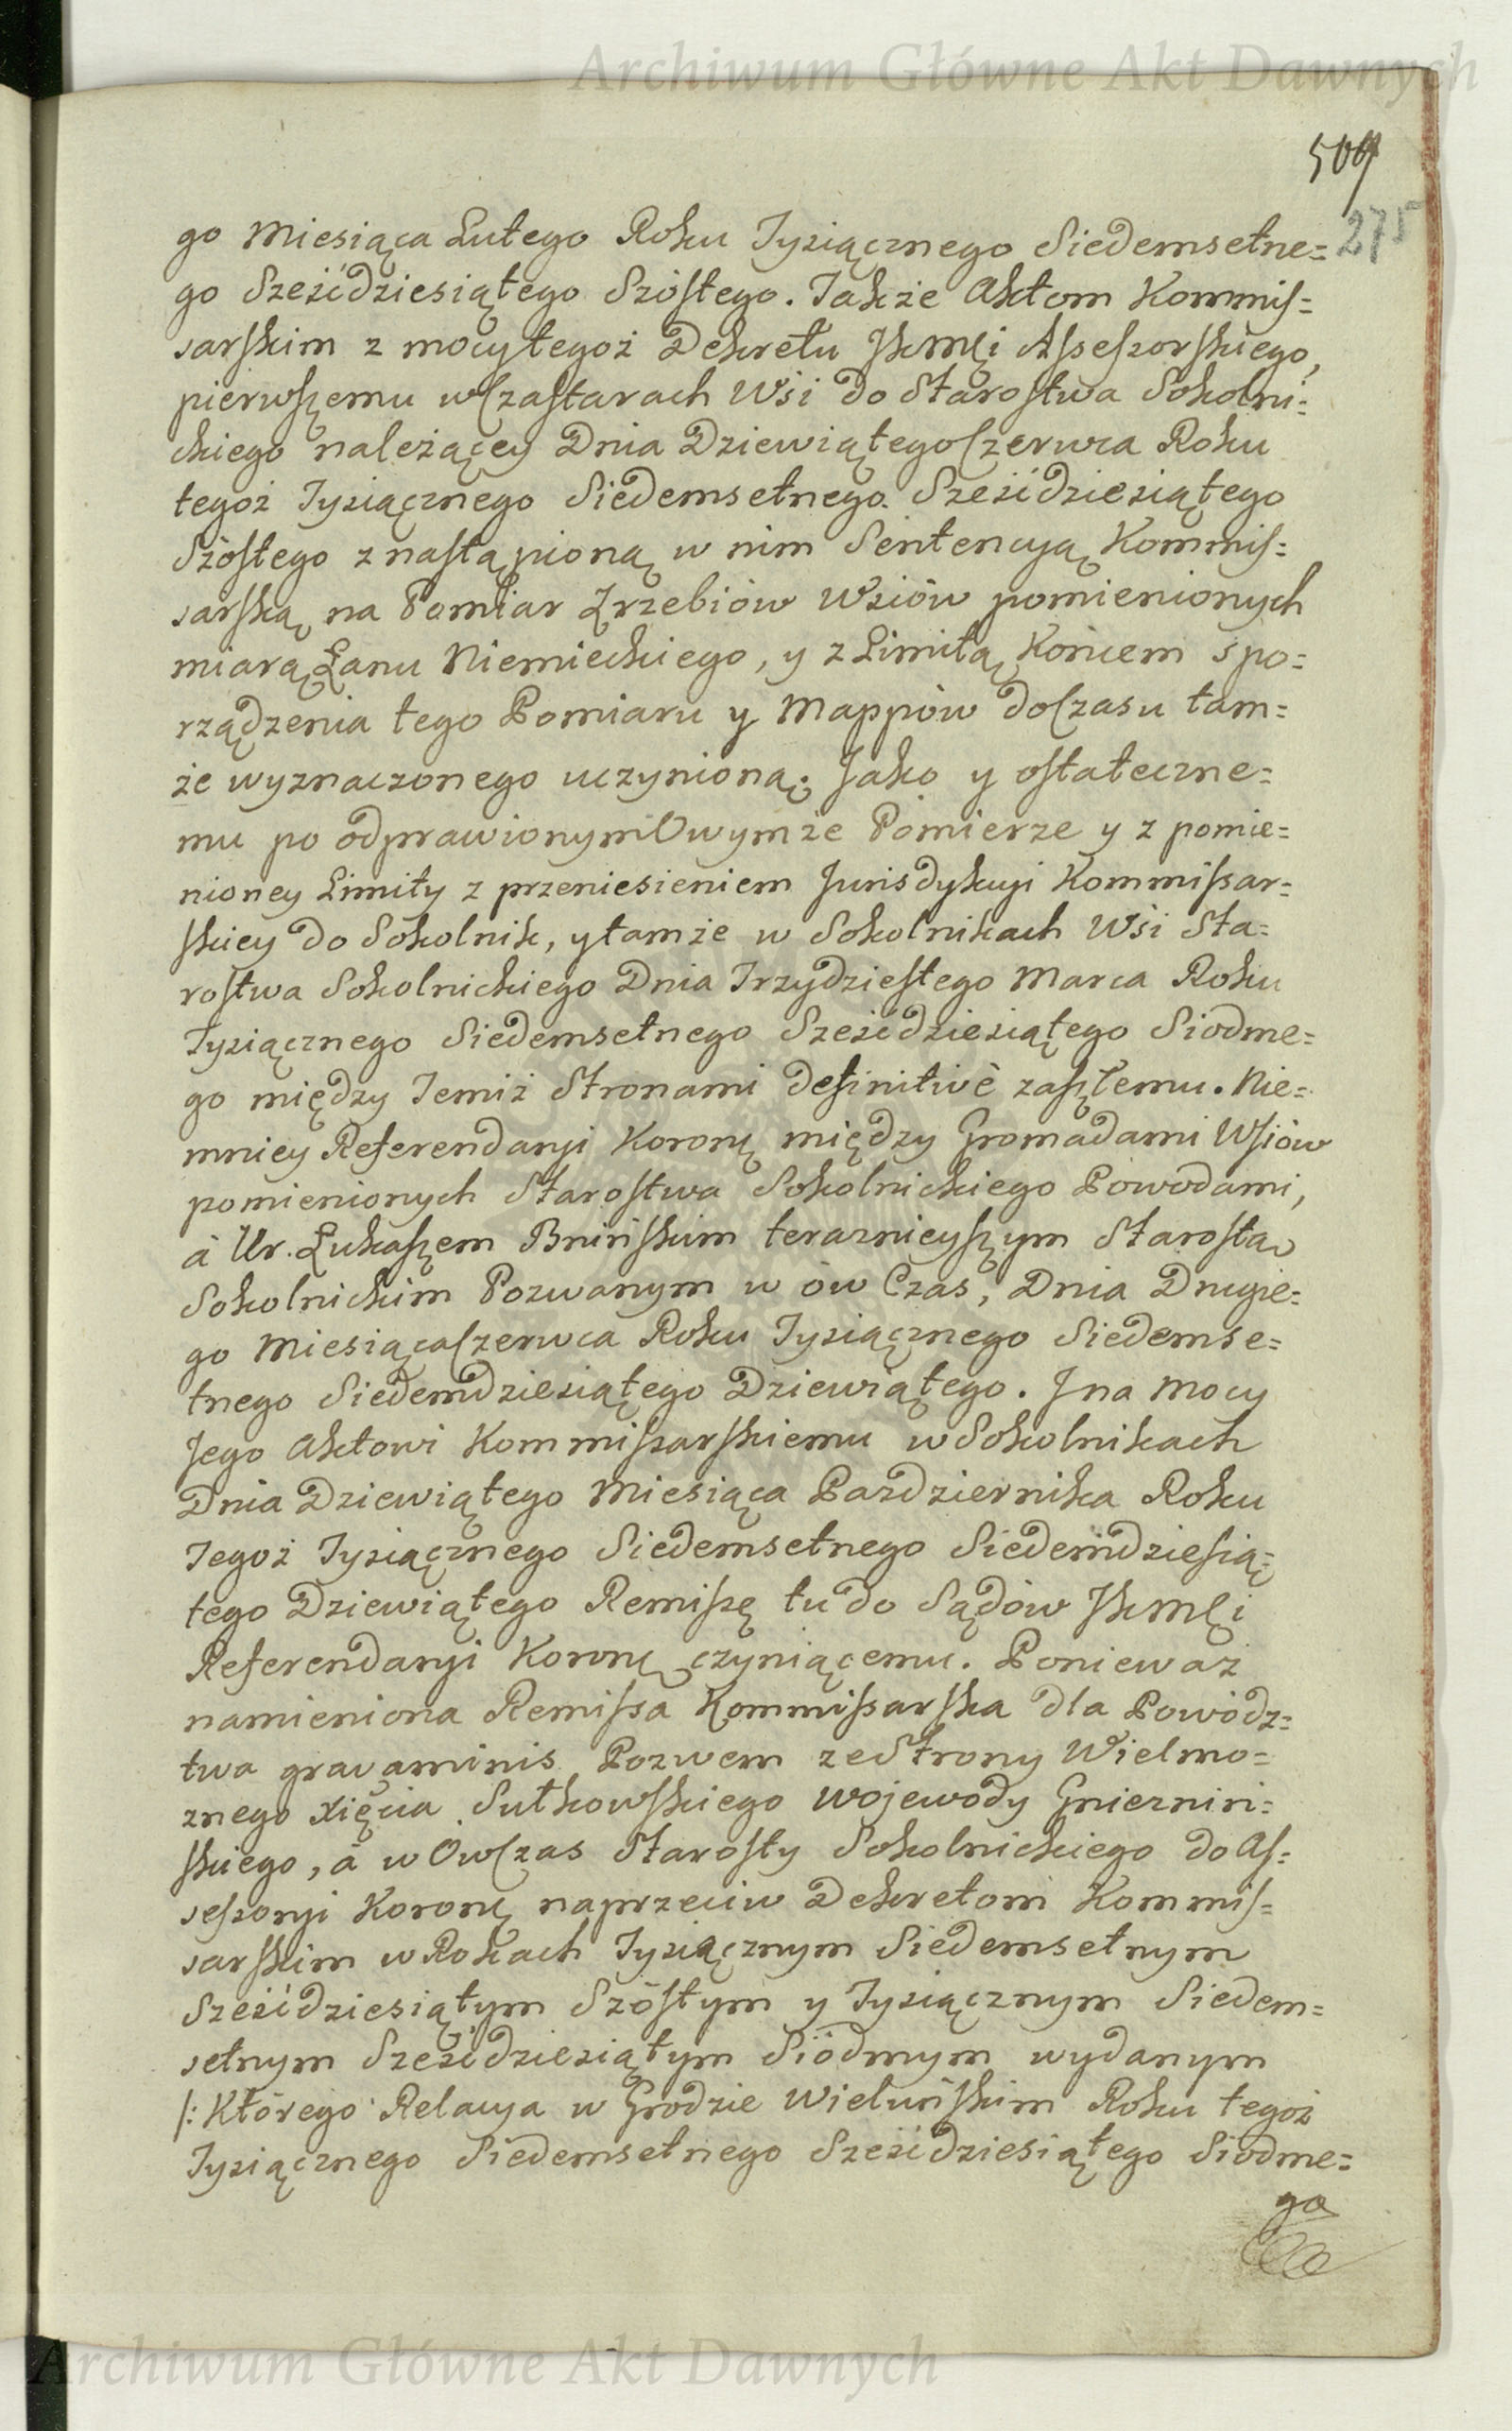 Archiwum Główne Akt Dawnych
509
275
go Miesiąca Lutego Roku Tysiącznego Siedemsetne=
go Sześćdziesiątego Szostego. Także Aktom Kommis=
sarskim z mocy tegoż Dekretu JKMCi Assessorskiego,
pierwszemu w Czastarach Wsi do Starostwa Sokolni=
ckiego należącey Dnia Dziewiątego Czerwca Roku
tegoż Tysiącznego Siedemsetnego Sześćdziesiątego
Szóstego z nastąpioną w nim Sentencyą Kommis=
sarską na Pomiar Zrzebiów Wsiów pomienionych
miarą Łanu Niemieckiego, y z Limitą Końcem spo=
rządzenia tego Pomiaru y Mappów do Czasu tam=
że wyznaczonego uczynioną. Jako y ostateczne=
mu po odprawionym Owymże Pomierze y z pomie=
nioney Limity z przeniesieniem Jurisdykcyi Kommissar=
skiey do Sokolnik, y tamże w Sokolnikach Wsi Sta=
rostwa Sokolnickiego Dnia Trzydziestego Marca Roku
Tysiącznego Siedemsetnego Sześćdziesiątego Siodme=
go między Temiż Stronami definitivè zaszłemu. Nie=
mniey Referendaryi Koronę między Gromadami Wsiów
pomienionych Starostwa Sokolnickiego Powodami,
à Ur. Łukaszem Bnińskim teraznieyszym Starostą
Sokolnickim Pozwanym w ów Czas, Dnia Drugie=
go Miesiąca Czerwca Roku Tysiącznego Siedemse=
tnego Siedemdziesiątego Dziewiątego. J na mocy
Jego Aktowi Kommissarskiemu w Sokolnikach
Dnia Dziewiątego Miesiąca Pazdziernika Roku
Tegoż Tysiącznego Siedemsetnego Siedemdziesią=
tego Dziewiątego Remissę tu do Sądów JKMCi
Referendaryi Koronę czyniącemu. Ponieważ
namieniona Remissa Kommissarska dla Powódz=
twa gravaminis Pozwem ze Strony Wielmo=
znego Xięcia Sułkowskiego Wojewody Gniezniń=
skiego, à w Ow Czas Starosty Sokolnickiego do As=
sessoryi Koronę naprzeciw Dekretom Kommis=
sarskim w Rokach Tysiącznym Siedemsetnym
Sześćdziesiątym Szóstym y Tysiącznym Siedem=
setnym Sześćdziesiątym Siódmym wydanym
/: Którego Relacya w Grodzie Wieluńskim Roku tegoż
Tysiącznego Siedemsetnego Sześćdziesiątego Siodme=
go
Archiwum Główne Akt Dawnych